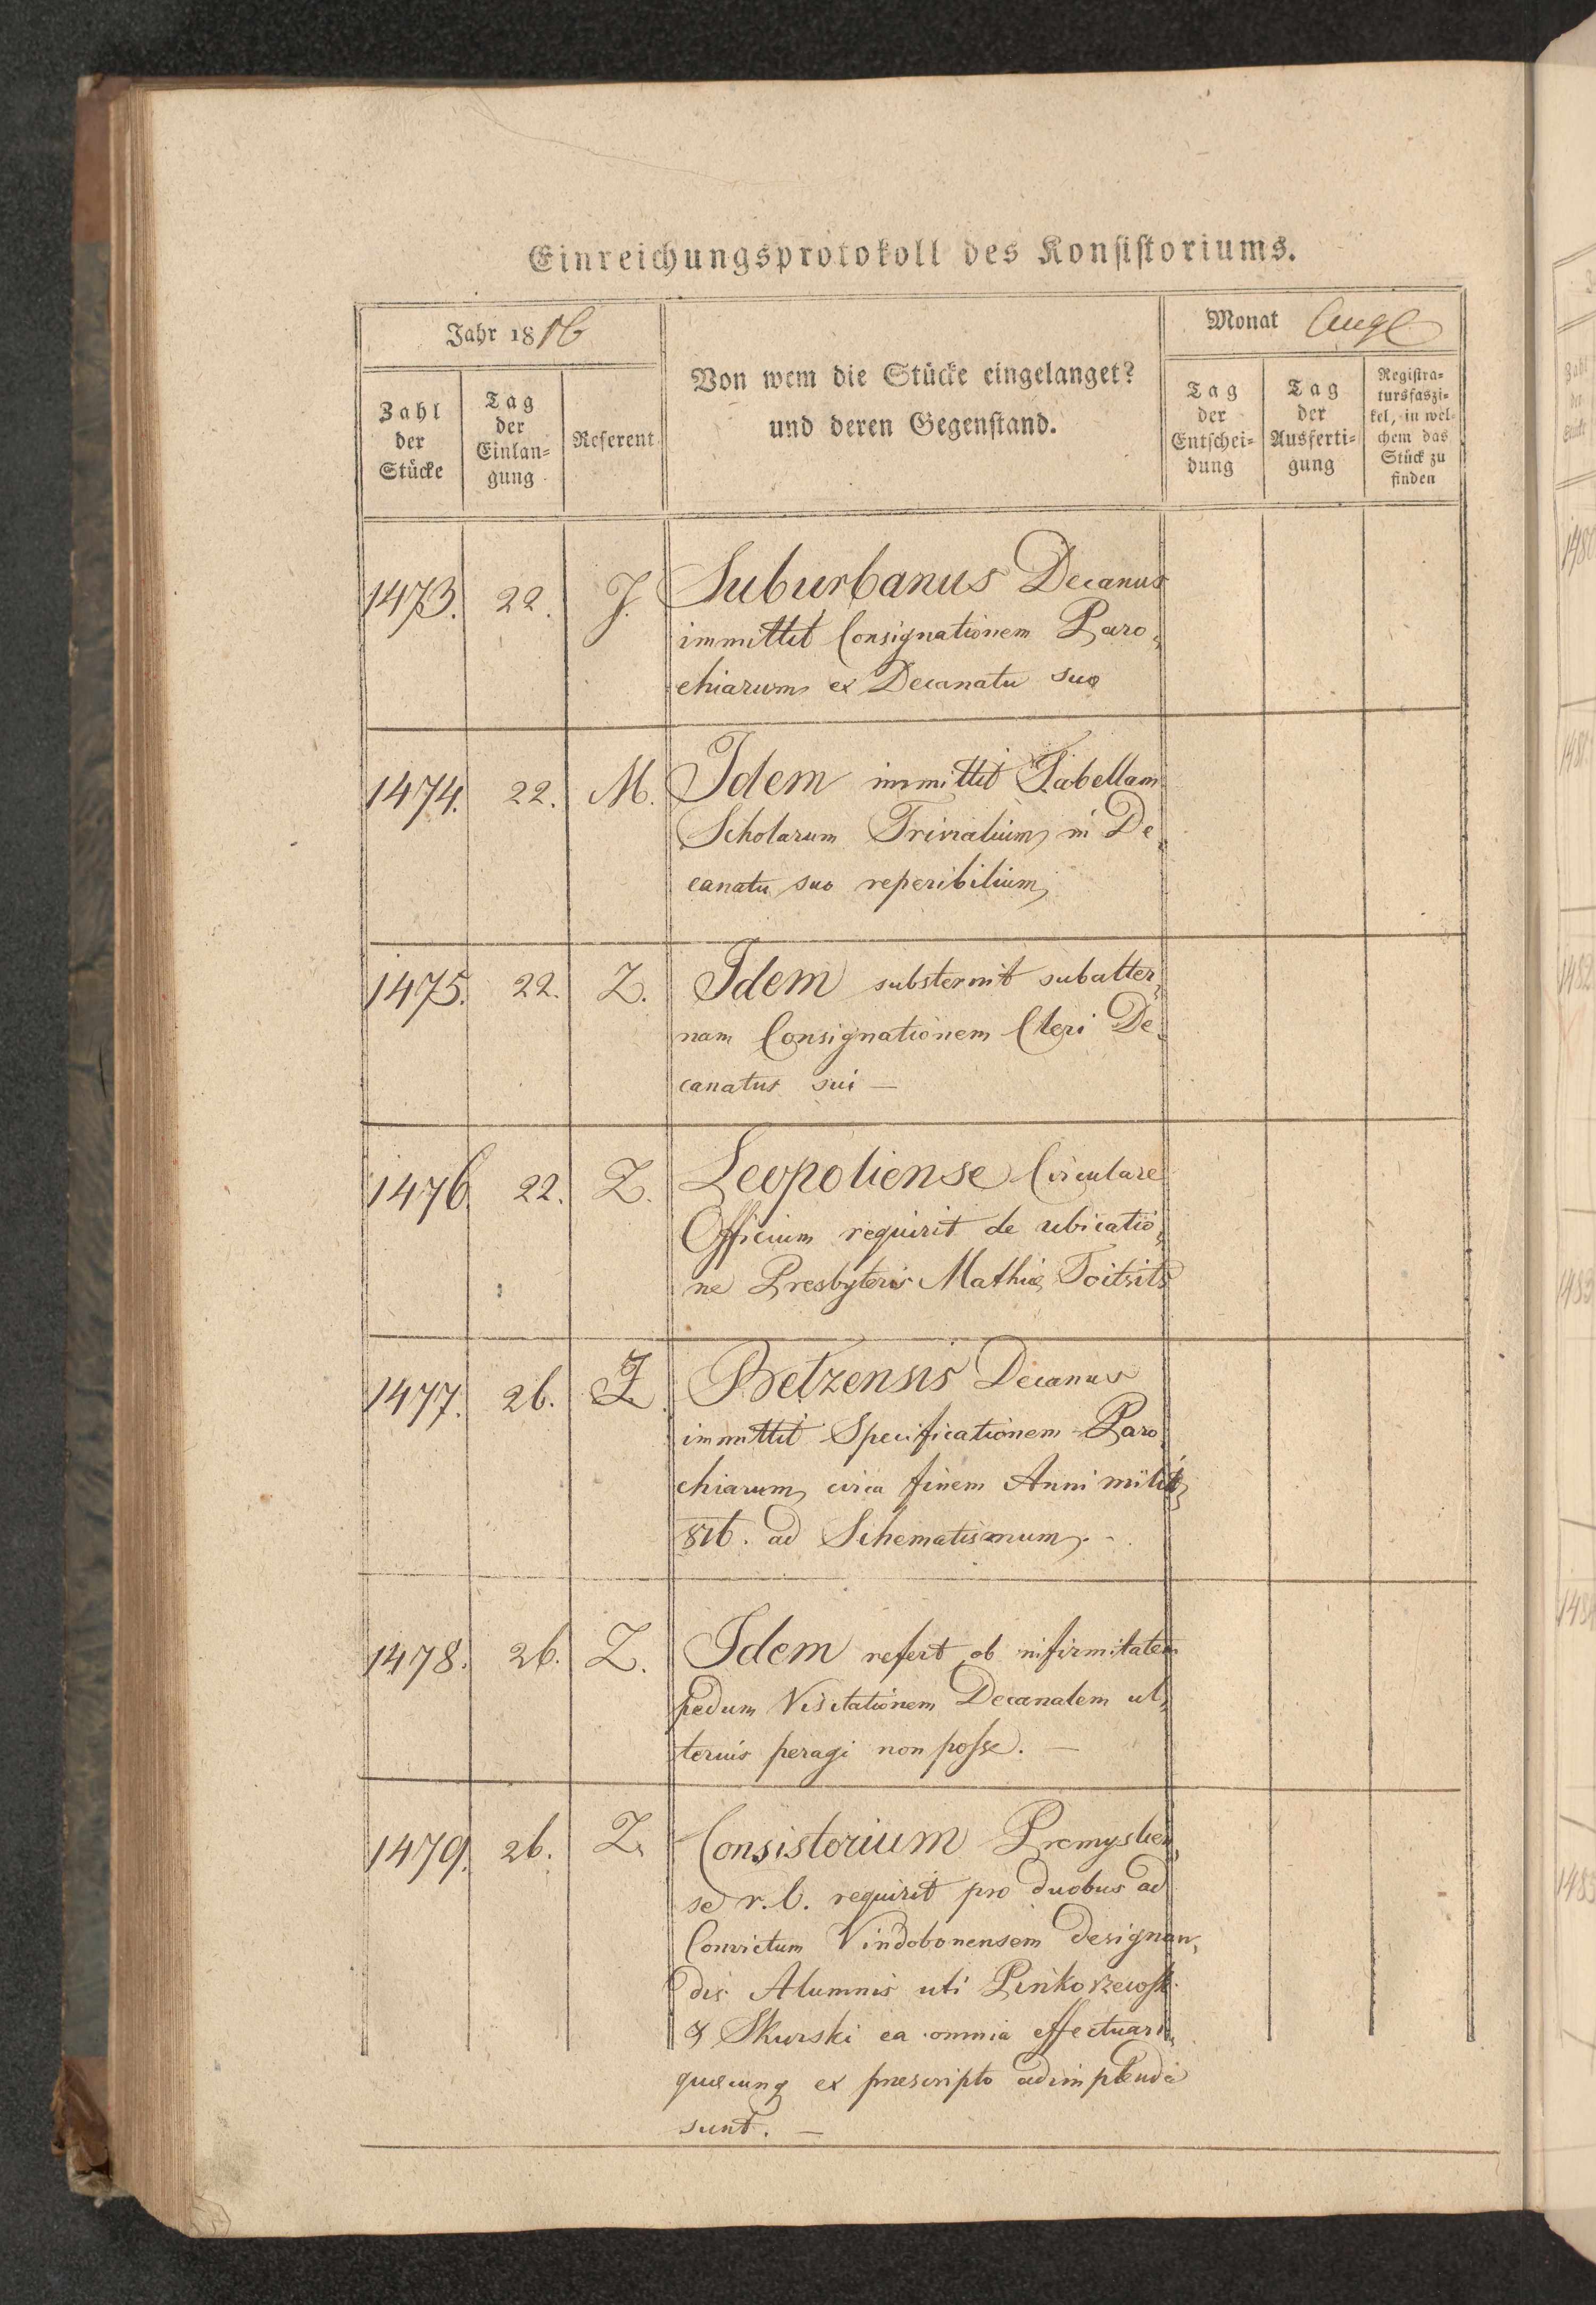 Einreichungsprotokoll des Konsistoriums.
Jahr 1816
Monat Aug
Zahl der Stücke
Tag der Einlan=gung
Referent
Von wem die Stücke eingelanget?
und deren Gegenstand.
Tag der Entschei=dung
Tag der Ausferti=gung
Registra=tursfaszi=kel, in wel=chem das Stück zu finden
1473. 22. J. Suburbanus Decanus
immittit Consignationem Paro„
chiarum ex Decanatu suo
1474. 22. M. Idem immittit Tabellam
Scholarum Trivialium in De„
canatu suo reperibilium
1475. 22. Z. Idem substernit subalter„
nam Consignationem Cleri De„
canatus sui —
1476. 22. Z. Leopoliense Circulare
Officium requirit de ubicatio„
ne Presbyteri Mathiæ Toitsits
1477. 26. Betzensis Decanus
immittit Specificationem Paro„
chiarum circa finem Anni milit
816. ad Schematismum. -
1478. 26. Z. Idem refert ob infirmitatem
pedum Visitationem Decanalem ul„
terius peragi non posse. —
1479. 26. Z. Consistorium Premyslien„
se r. l. requirit pro duobus ad
Convictum Vindobonensem designan„
dis Alumnis uti Pinkorzewsk
& Skurski ea omnia effectuari„
quæcunq ex præscripto adimplenda
sunt. —